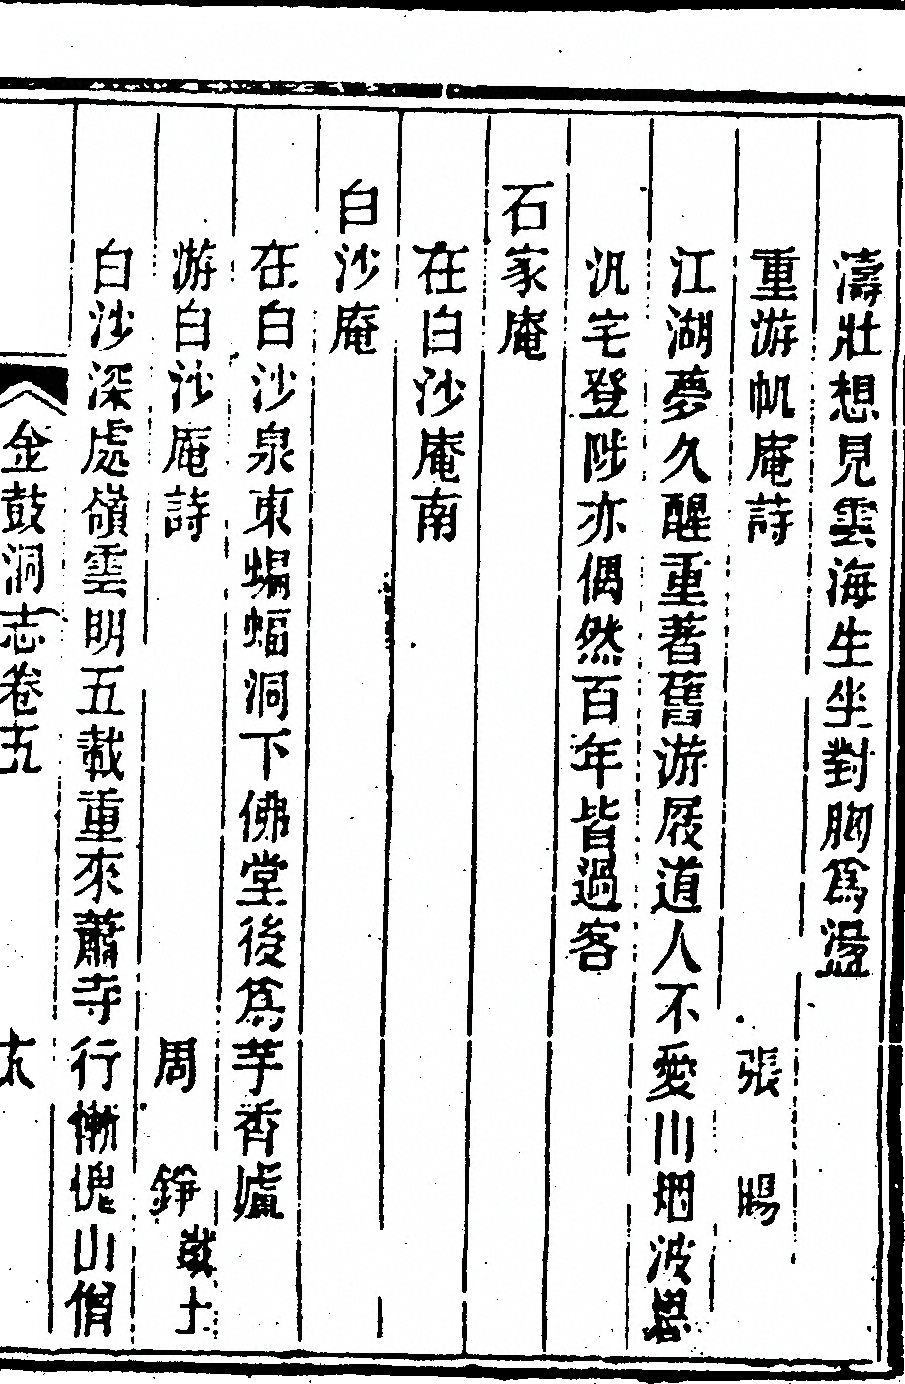 濤壯想見雲海生坐對胸爲盪
重游帆庵詩　張　暘
江湖夢久醒重著舊游屐道人不愛山烟波
汎宅登陟亦偶然百年皆過客
石家庵
在白沙庵南
白沙庵
在白沙泉東蝙蝠洞下佛堂後爲芋香爐
游白沙庵詩　周　錚
白沙深處嶺雲明五載重來蕭寺行慚愧山僧
金鼓洞志卷五